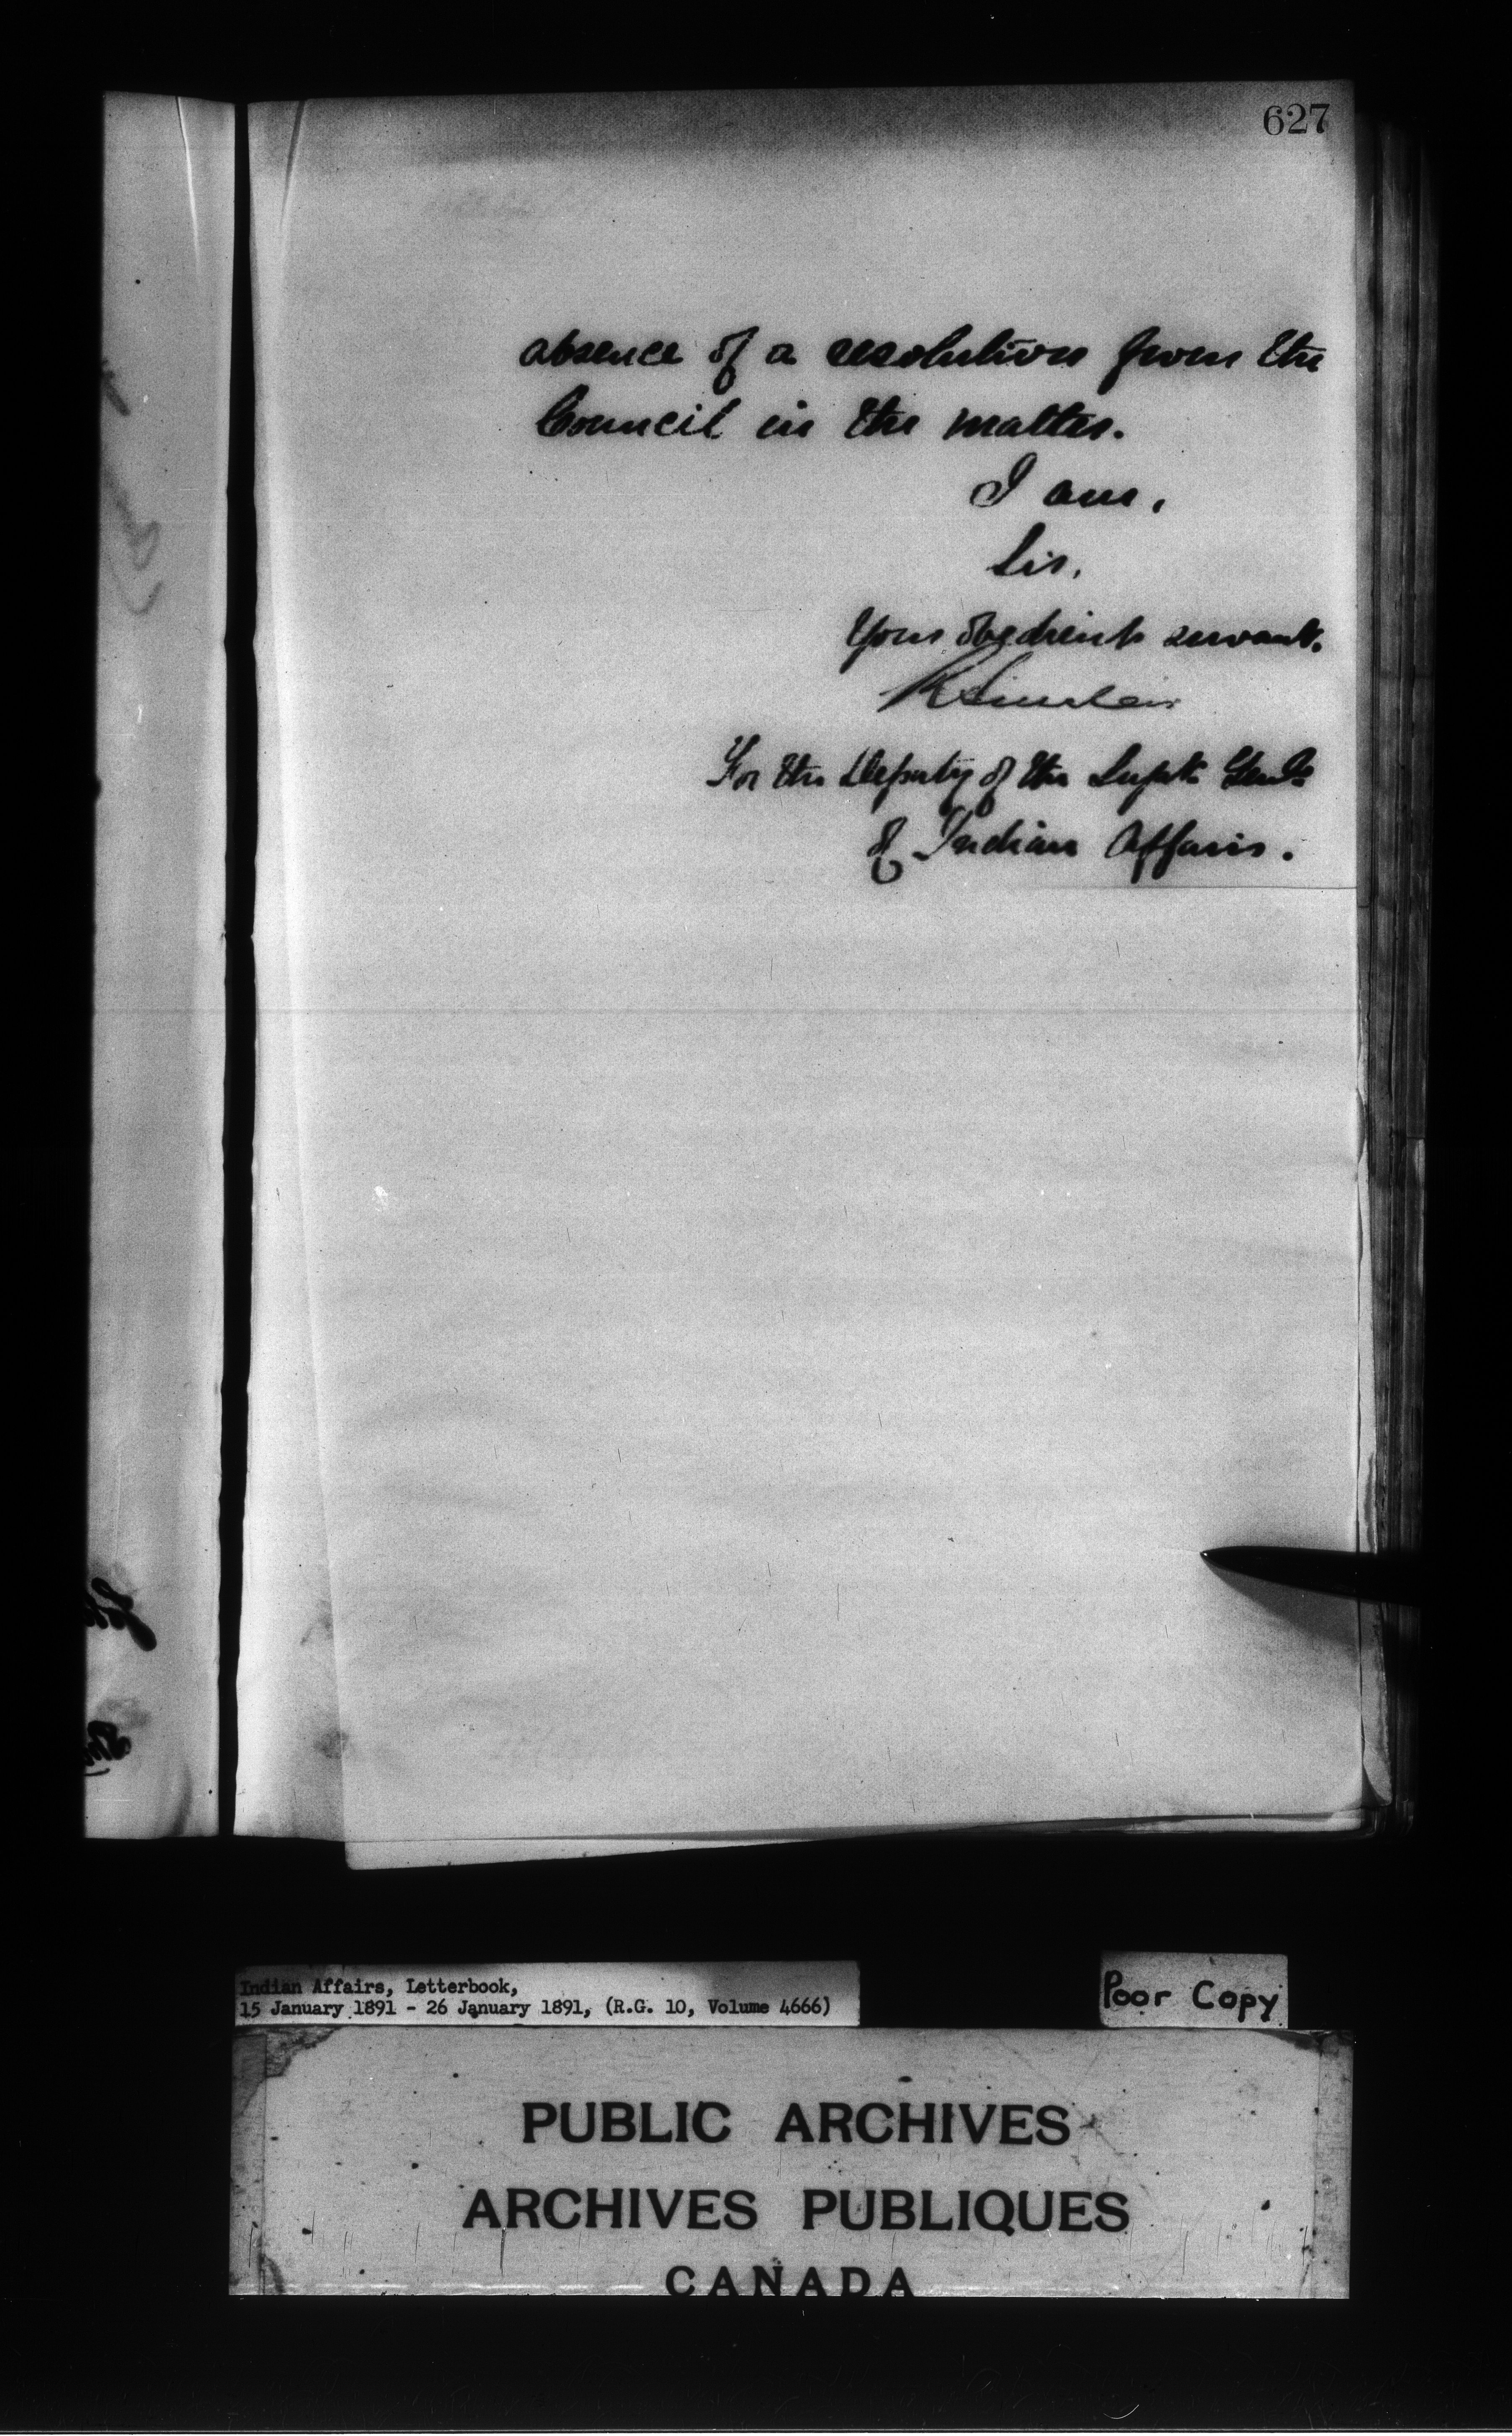 627
absence of a resolution from the
Council in the matter.
I am,
Sir,
Your obedient servant.
R Sinclair
For the Deputy of the Supt. Genl.
of Indian Affairs.
Indian Affairs, Letterbook,
15 January 1891 - 26 January 1891, (R.G. 10, Volume 4666)
Poor Copy
PUBLIC ARCHIVES
ARCHIVES PUBLIQUES
CANADA